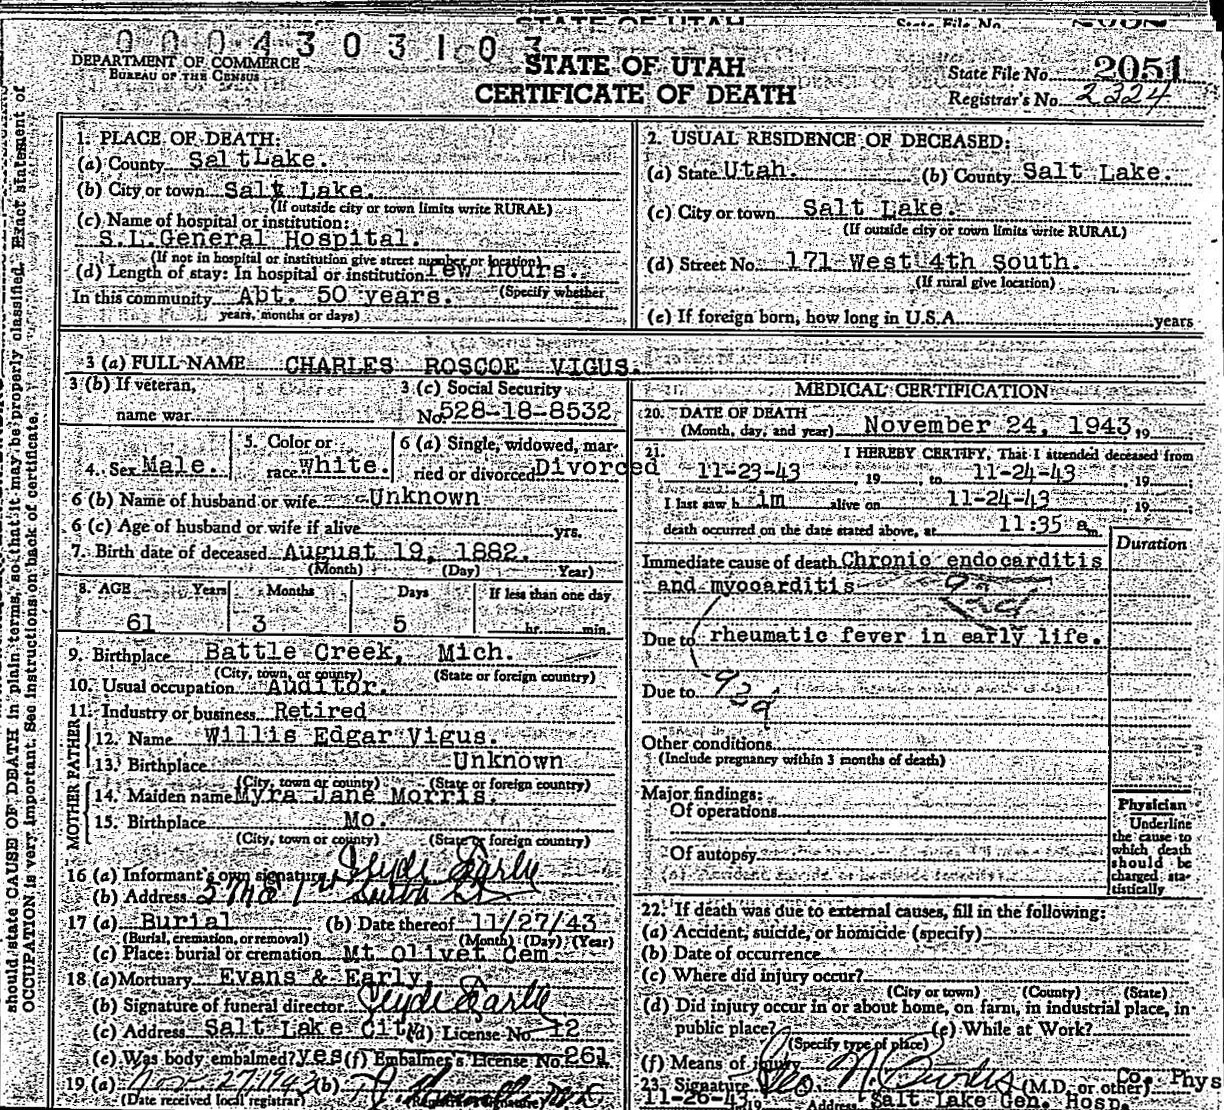 STATE OF UTAH
State File No.
0 0 0 4 3 0 3 1 0 3
DEPARTMENT OF COMMERCE
BUREAU OF THE CENSUS
STATE OF UTAH
CERTIFICATE OF DEATH
State File No. 2051
Registrar's No. 2324
should state CAUSE OF DEATH in plain terms, so that it may be properly classified. Exact statement of
OCCUPATION is very important. See instructions on back of certificate.
1. PLACE OF DEATH:
(a) County Salt Lake.
(b) City or town Salt Lake.
(If outside city or town limits write RURAL)
(c) Name of hospital or institution:
S.L.General Hospital.
(If not in hospital or institution give street number or location)
(d) Length of stay: In hospital or institution few hours.
(Specify whether
In this community Abt. 50 years.
years, months or days)
2. USUAL RESIDENCE OF DECEASED:
(a) State Utah. (b) County Salt Lake.
(c) City or town Salt Lake.
(If outside city or town limits write RURAL)
(d) Street No. 171 West 4th South.
(If rural give location)
(e) If foreign born, how long in U.S.A. years
3 (a) FULL NAME CHARLES ROSCOE VIGUS.
3 (b) If veteran,
name war
3 (c) Social Security
No. 528-18-8532
4. Sex Male.
5. Color or
race White.
6 (a) Single, widowed, mar-
ried or divorced Divorced
6 (b) Name of husband or wife Unknown
6 (c) Age of husband or wife if alive yrs.
7. Birth date of deceased August 19, 1882.
(Month) (Day) Year)
8. AGE Years Months Days If less than one day
61 3 5 hr. min.
9. Birthplace Battle Creek, Mich.
(City, town, or county) (State or foreign country)
10. Usual occupation Auditor.
11. Industry or business Retired
FATHER
12. Name Willis Edgar Vigus.
13. Birthplace Unknown
(City, town or county) (State or foreign country)
MOTHER
14. Maiden name Myra Jane Morris.
15. Birthplace Mo.
(City, town or county) (State or foreign country)
16 (a) Informant's own signature Clyde Earlie
(b) Address
17 (a) Burial (b) Date thereof 11/27/43
(Burial, cremation, or removal) (Month) (Day) (Year)
(c) Place: burial or cremation Mt Olivet Cem
18 (a) Mortuary Evans & Early
(b) Signature of funeral director Clyde Earlie
(c) Address Salt Lake City (d) License No. 12
(e) Was body embalmed? yes (f) Embalmer's License No. 261
19 (a) Nov. 27, 1943 (b)
(Date received local registrar) (Registrar's signature)
MEDICAL CERTIFICATION
20. DATE OF DEATH
(Month, day, and year) November 24, 1943, 19
21. I HEREBY CERTIFY, That I attended deceased from
11-23-43, 19, to 11-24-43, 19
I last saw h im alive on 11-24-43, 19
death occurred on the date stated above, at 11:35 a m.
Duration
Immediate cause of death Chronic endocarditis
and myocarditis
92d
Due to rheumatic fever in early life.
Due to 93d
Other conditions
(Include pregnancy within 3 months of death)
Major findings:
Of operations
Of autopsy
Physician
Underline
the cause to
which death
should be
charged sta-
tistically
22. If death was due to external causes, fill in the following:
(a) Accident, suicide, or homicide (specify)
(b) Date of occurrence
(c) Where did injury occur?
(City or town) (County) (State)
(d) Did injury occur in or about home, on farm, in industrial place, in
public place? (e) While at Work?
(Specify type of place)
(f) Means of injury
23. Signature (M.D. or other) Co. Phys
11-26-43, 19 Address Salt Lake Gen. Hosp.